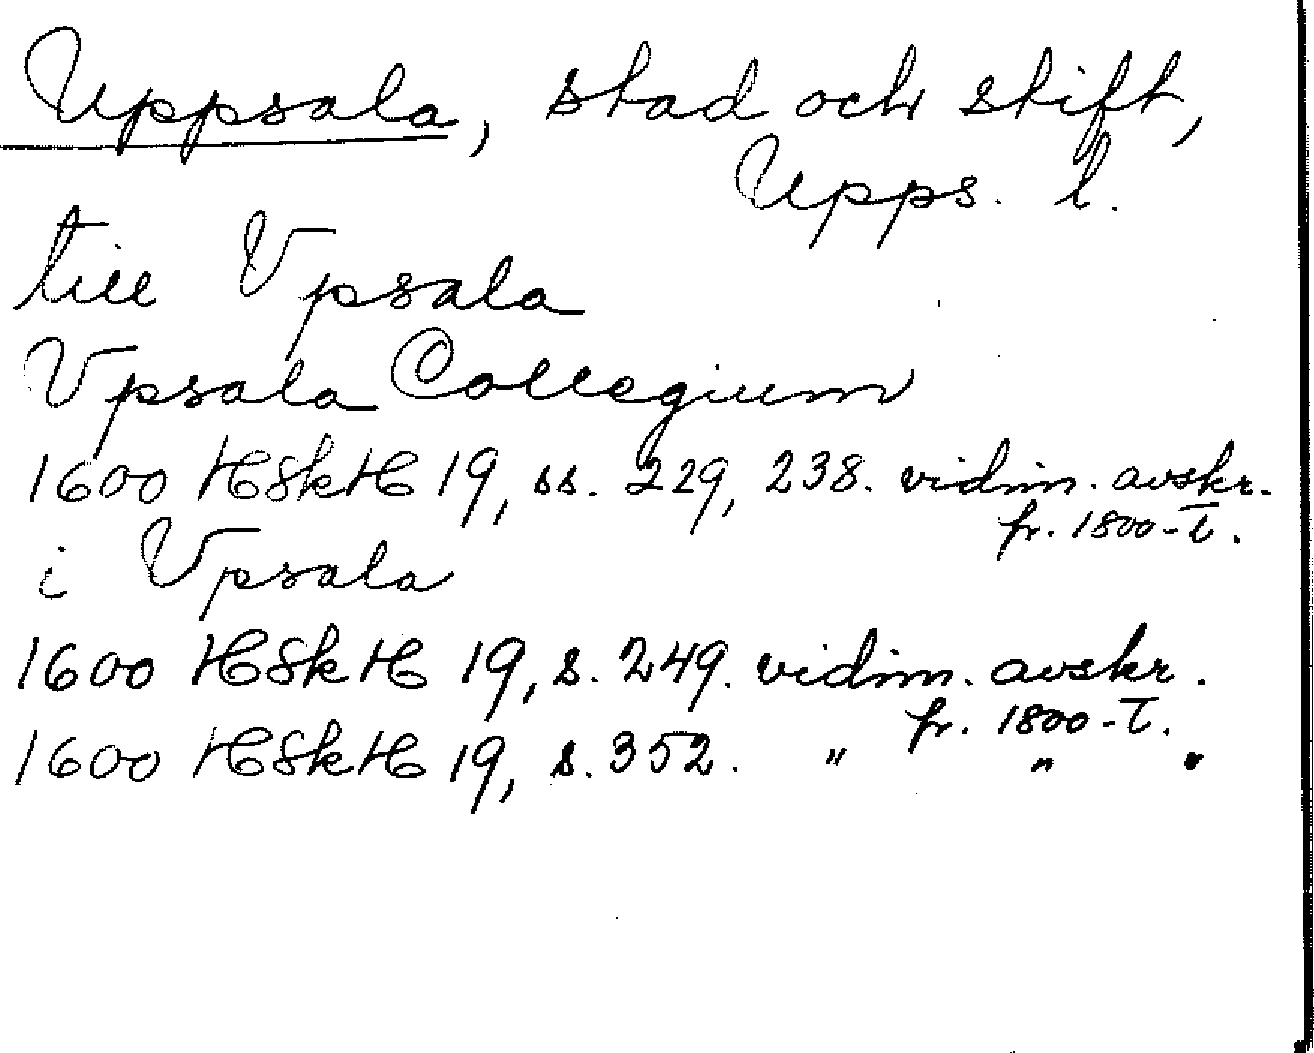 Uppsala, stad och stift,
Upps. l.
till Vpsala
Vpsala Collegium
1600 HSkH 19, ss. 229, 238. vidim. avskr.
fr. 1800-t.
i Vpsala
1600 HSkH 19, s. 249. vidim. avskr.
fr. 1800-t.
1600 HSkH 19, s. 352. " " "